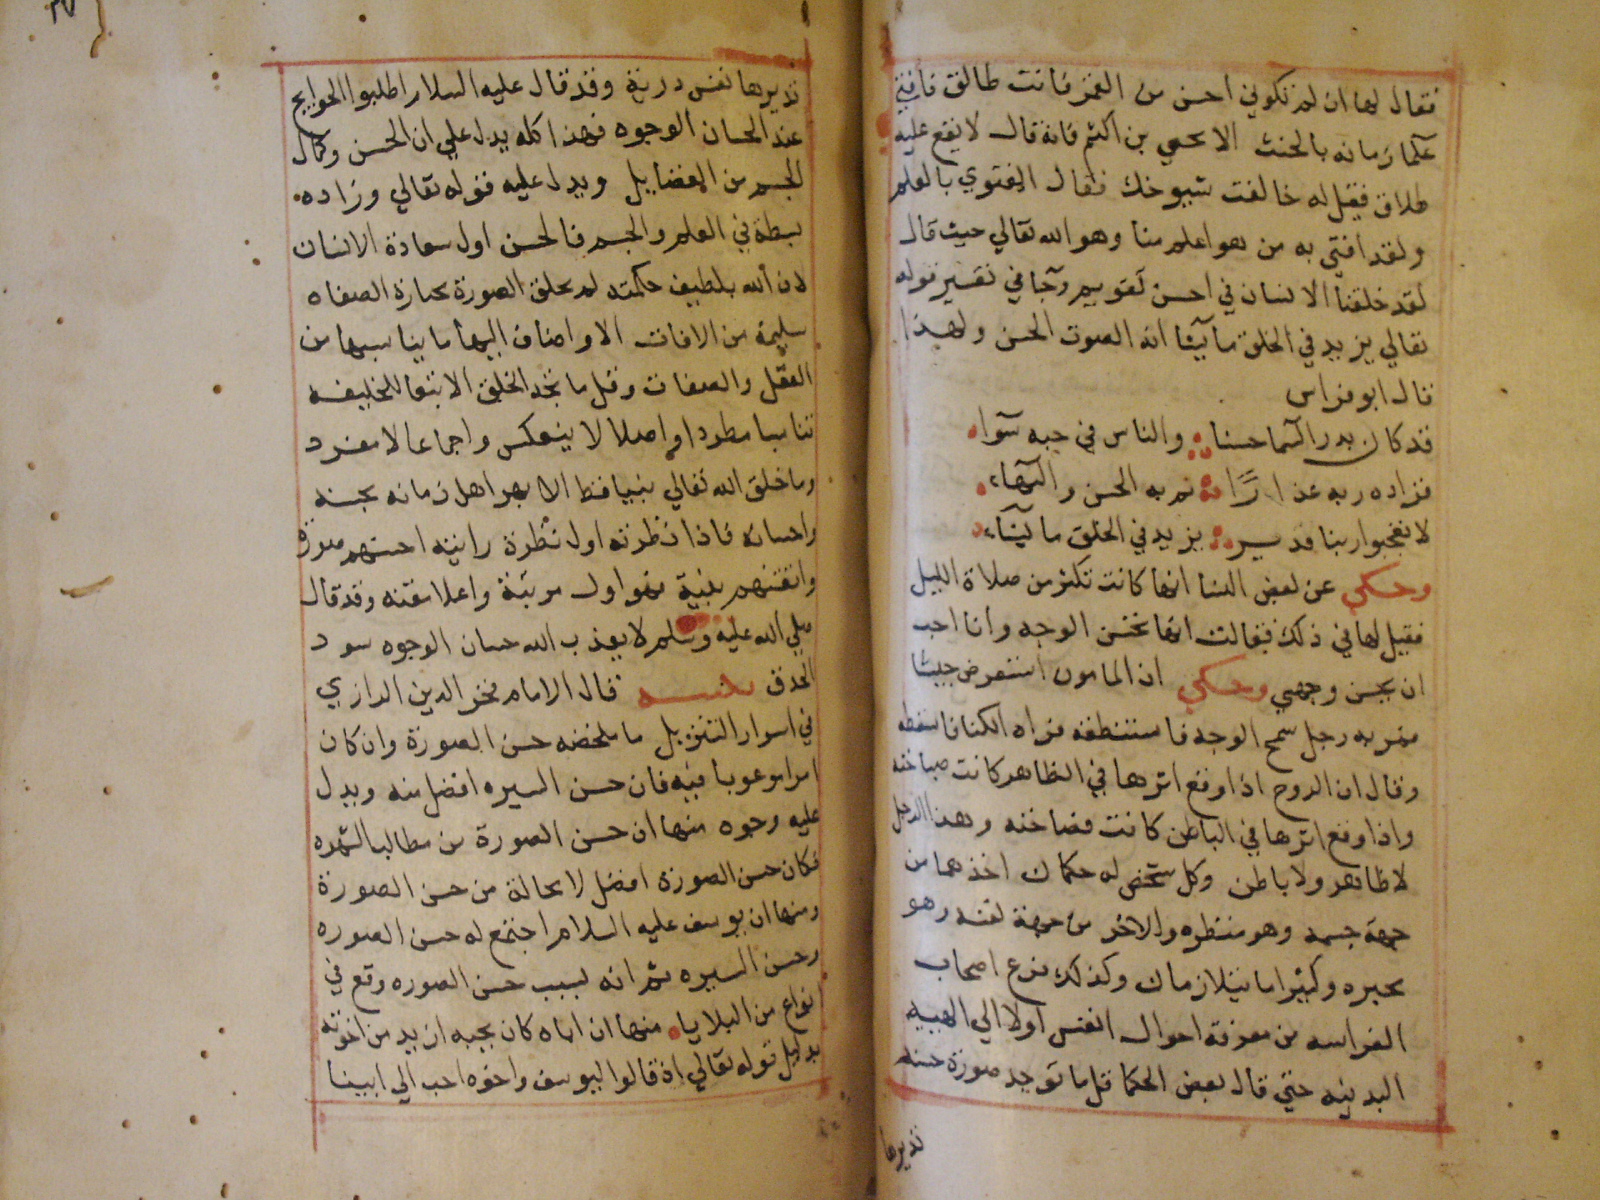 فقال لها ان لم تكوني احسن من القمر فانت طالق فافتي
علما زمانه بالحنث الا يحيي بن اكثم فانه قال لا يقع عليه
طلاق فقيل له خالفت شيوخك فقال الفتوي بالعلم
ولقد افتي به من هو اعلم منا وهو الله تعالي حيث قال
لقد خلقنا الانسان في احسن تقويم وجا في تفسير قوله
تعالي يزيد في الخلق ما يشا انه الصوت الحسن ولهذا
قال ابو فراس
قد كان بدر السما حسنا والناس في حبه سوا
فزاده ربه عذارًا تم به الحسن والبها
لا تعجبوا ربنا قدير يزيد في الخلق ما يشا
وحكي عن بعض النسا انها كانت تكثر من صلاة الليل
فقيل لها في ذلك فقالت انها تحسن الوجه وأنا احب
ان يحسن وجهي وحكي ان المامون استعرض جيشا
فمر به رجل سمج الوجه فاستنطقه فراه الكنا فاسقطه
وقال ان الروح اذا وقع اثرها في الظاهر كانت صباحة
واذا وقع اثرها في الباطن كانت فصاحة وهذا الرجل
لا ظاهر ولا باطن وكل شخص له حكمان احدهما من
جهة جسمه وهو منظره والاخر من جهة نفسه وهو
مخبره وكثيرا ما يتلازمان وكذلك فزع اصحاب
الفراسه من معرفة احوال النفس اولا الي الهيبه
البدنيه حتي قال بعض الحكما قل ما توجد صورة حسنه
تديرها
تديرها نفس درية وقد قال عليه السلام اطلبوا الحوايج
عند الحسان الوجوه فهذا كله يدل علي ان الحسن وكمال
الجسم من الفضايل ويدل عليه قوله تعالي وزاده
بسطة في العلم والجسم فالحسن اول سعادة الانسان
لان الله بلطيف حكمته لم يخلق الصورة مختارة الصفاه
سليمة من الافات الا واضاف اليها ما يناسبها من
العقل والصفات وقل ما تجد الخلق الا تبعا للخليقه
تناسبا مطردا واصلا لا ينعكس واجماعا لا منفرد
وما خلق الله تعالي نبيا قط الا بهر اهل زمانه بحسنه
واحسانه فاذا نظرته اول نظرة رايته احسنهم صورة
واتقنهم بنية فهو اول مرتبة واعلا منه وقد قال
صلي الله عليه وسلم لا يعذب الله حسان الوجوه سود
الحدق قال الامام فخر الدين الرازي
في اسرار التنزيل ما ملخصه حسن الصورة وان كان
امرا مرغوبا فيه فان حسن السيره افضل منه ويدل
عليه وجوه منها ان حسن الصورة من مطالب الشهوه
فكان حسن الصورة افضل لا محالة من حسن الصورة
ومنها ان يوسف عليه السلام اجتمع له حسن الصوره
وحسن السيره ثم انه بسبب حسن الصوره وقع في
انواع من البلايا منها ان اباه كان يحبه ازيد من اخوته
بدليل قوله تعالي اذ قالوا ليوسف واخوه احب الي ابينا